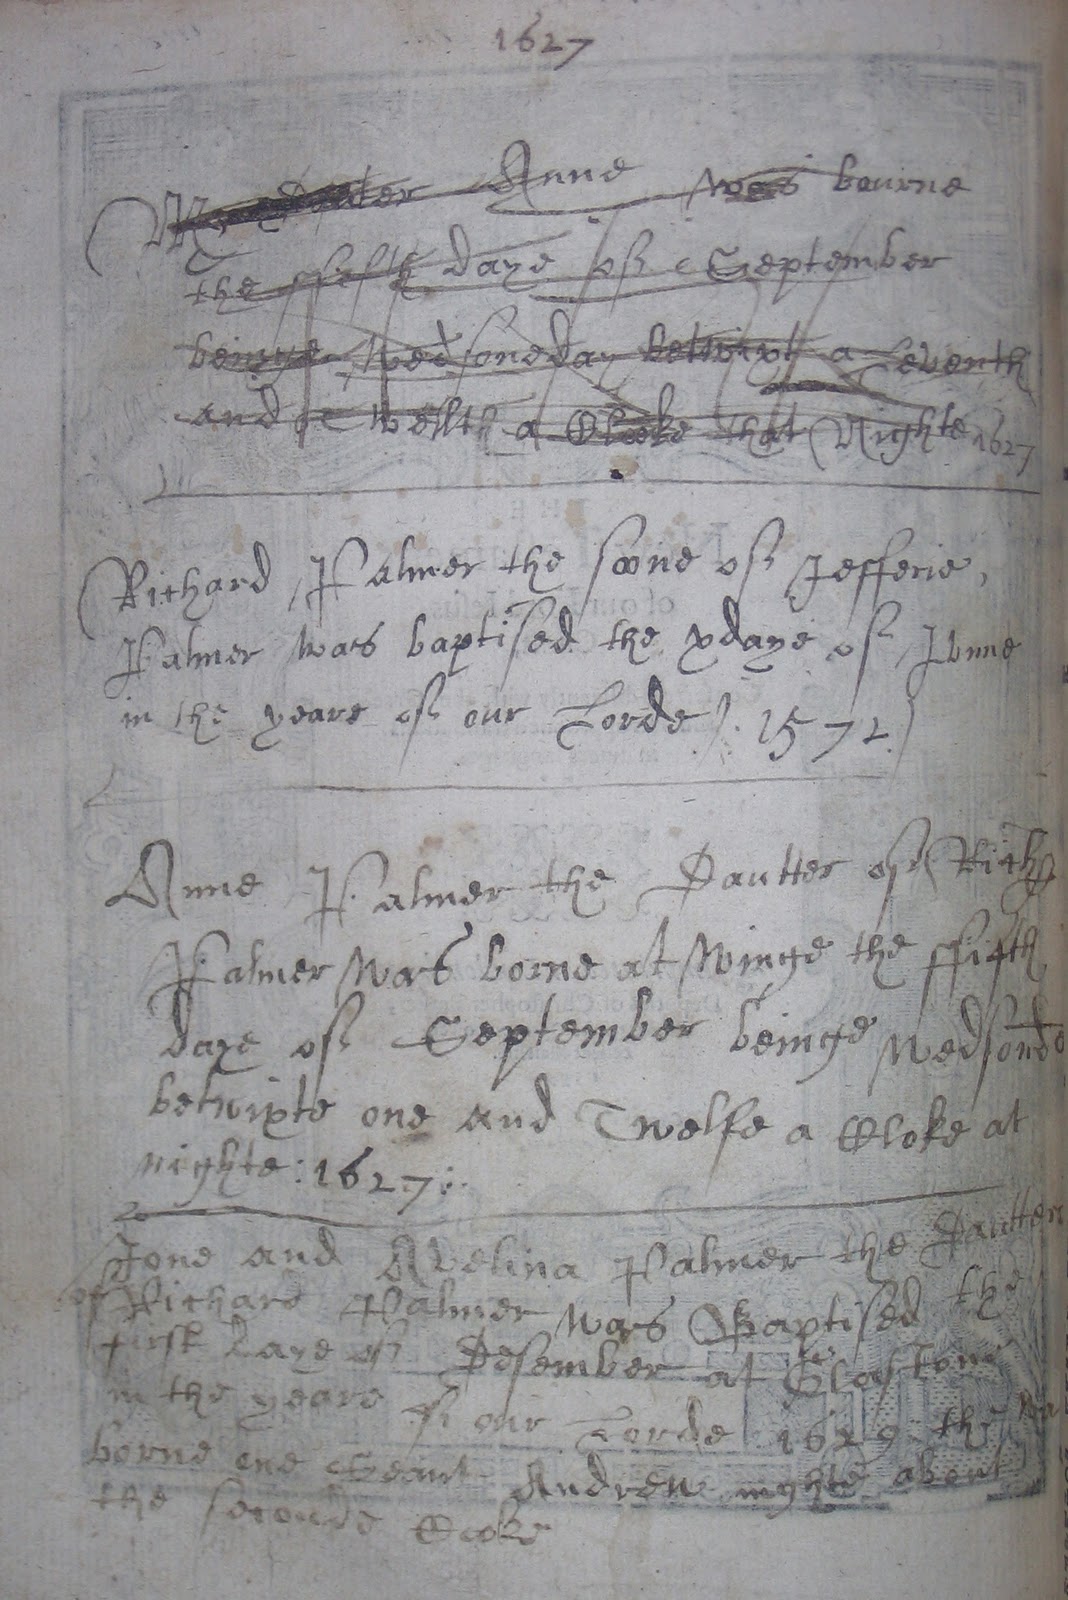 1627
My Dauter Anne was bourne
the ffifth daye of September
beinge Wedsoneday betwixt a Leventh
and Twellth a Clocke that Nighte 1627
Richard Palmer the soone of Jefferie
Palmer was baptised the x daye of Junne
in the yeare of our Lorde 1572
Anne Palmer the Dautter of Rich
Palmer was borne at Winge the ffifth
daye of September beinge Wedsonda
betwixte one and Twelfe a Cloke at
nighte : 1627 :
Jone and Avelina Palmer the Dautters
of Richard Palmer was Baptised the
first daye of Desember at Glastone
in the yeare of our Lorde 1629 the wa
borne one Seant Andrew nighte about
the seconde Cocke